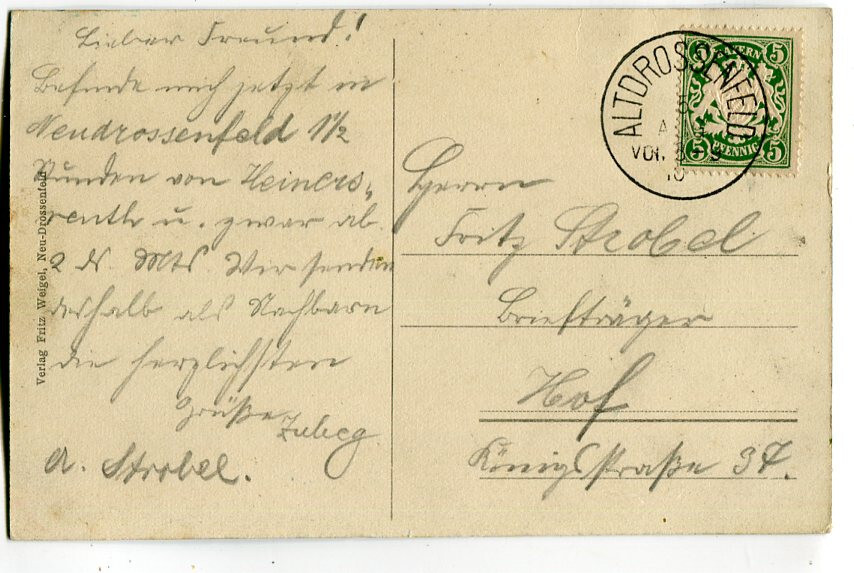 Lieber Freund!
Befinde mich jetzt in
Neudrossenfeld 1 1/2
Stunden von Heiners„
reuth u. zwar ab
2 ds. Mts. Wir senden
deshalb als Nachbarn
die herzlichsten
Grüße
A. Strobel.
Verlag Fritz Weigel, Neu-Drossenfeld
ALTDROSSENFELD
5
VOR. 8-9
10
BAYERN
5 5
PFENNIG
5 5
Herrn
Fritz Strobel
Briefträger
Hof
Königsstraße 37.